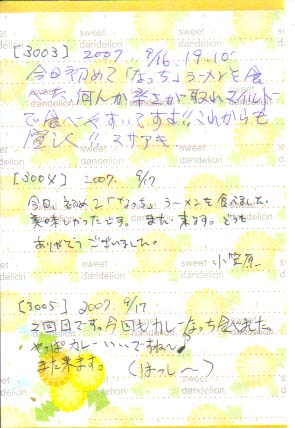 [3003] 2007. 9/16. 19.10
今日初めて「なっち」ラーメンを食
べた 何んか辛さが取れマイルド
で食べやすいですよ!! これからも
宜しく!! スサアキ
[3004] 2007. 9/17
今日、初めて「なっち」ラーメンを食べました。
美味しかったです。また来ます。どうも
ありがとうございました。
小笠原
[3005] 2007. 9/17
2回目です。今回もカレーなっち食べれた。
やっぱカレー・・・・ですね〜♪
また来ます。(ほっし〜)
sweet
dandelion